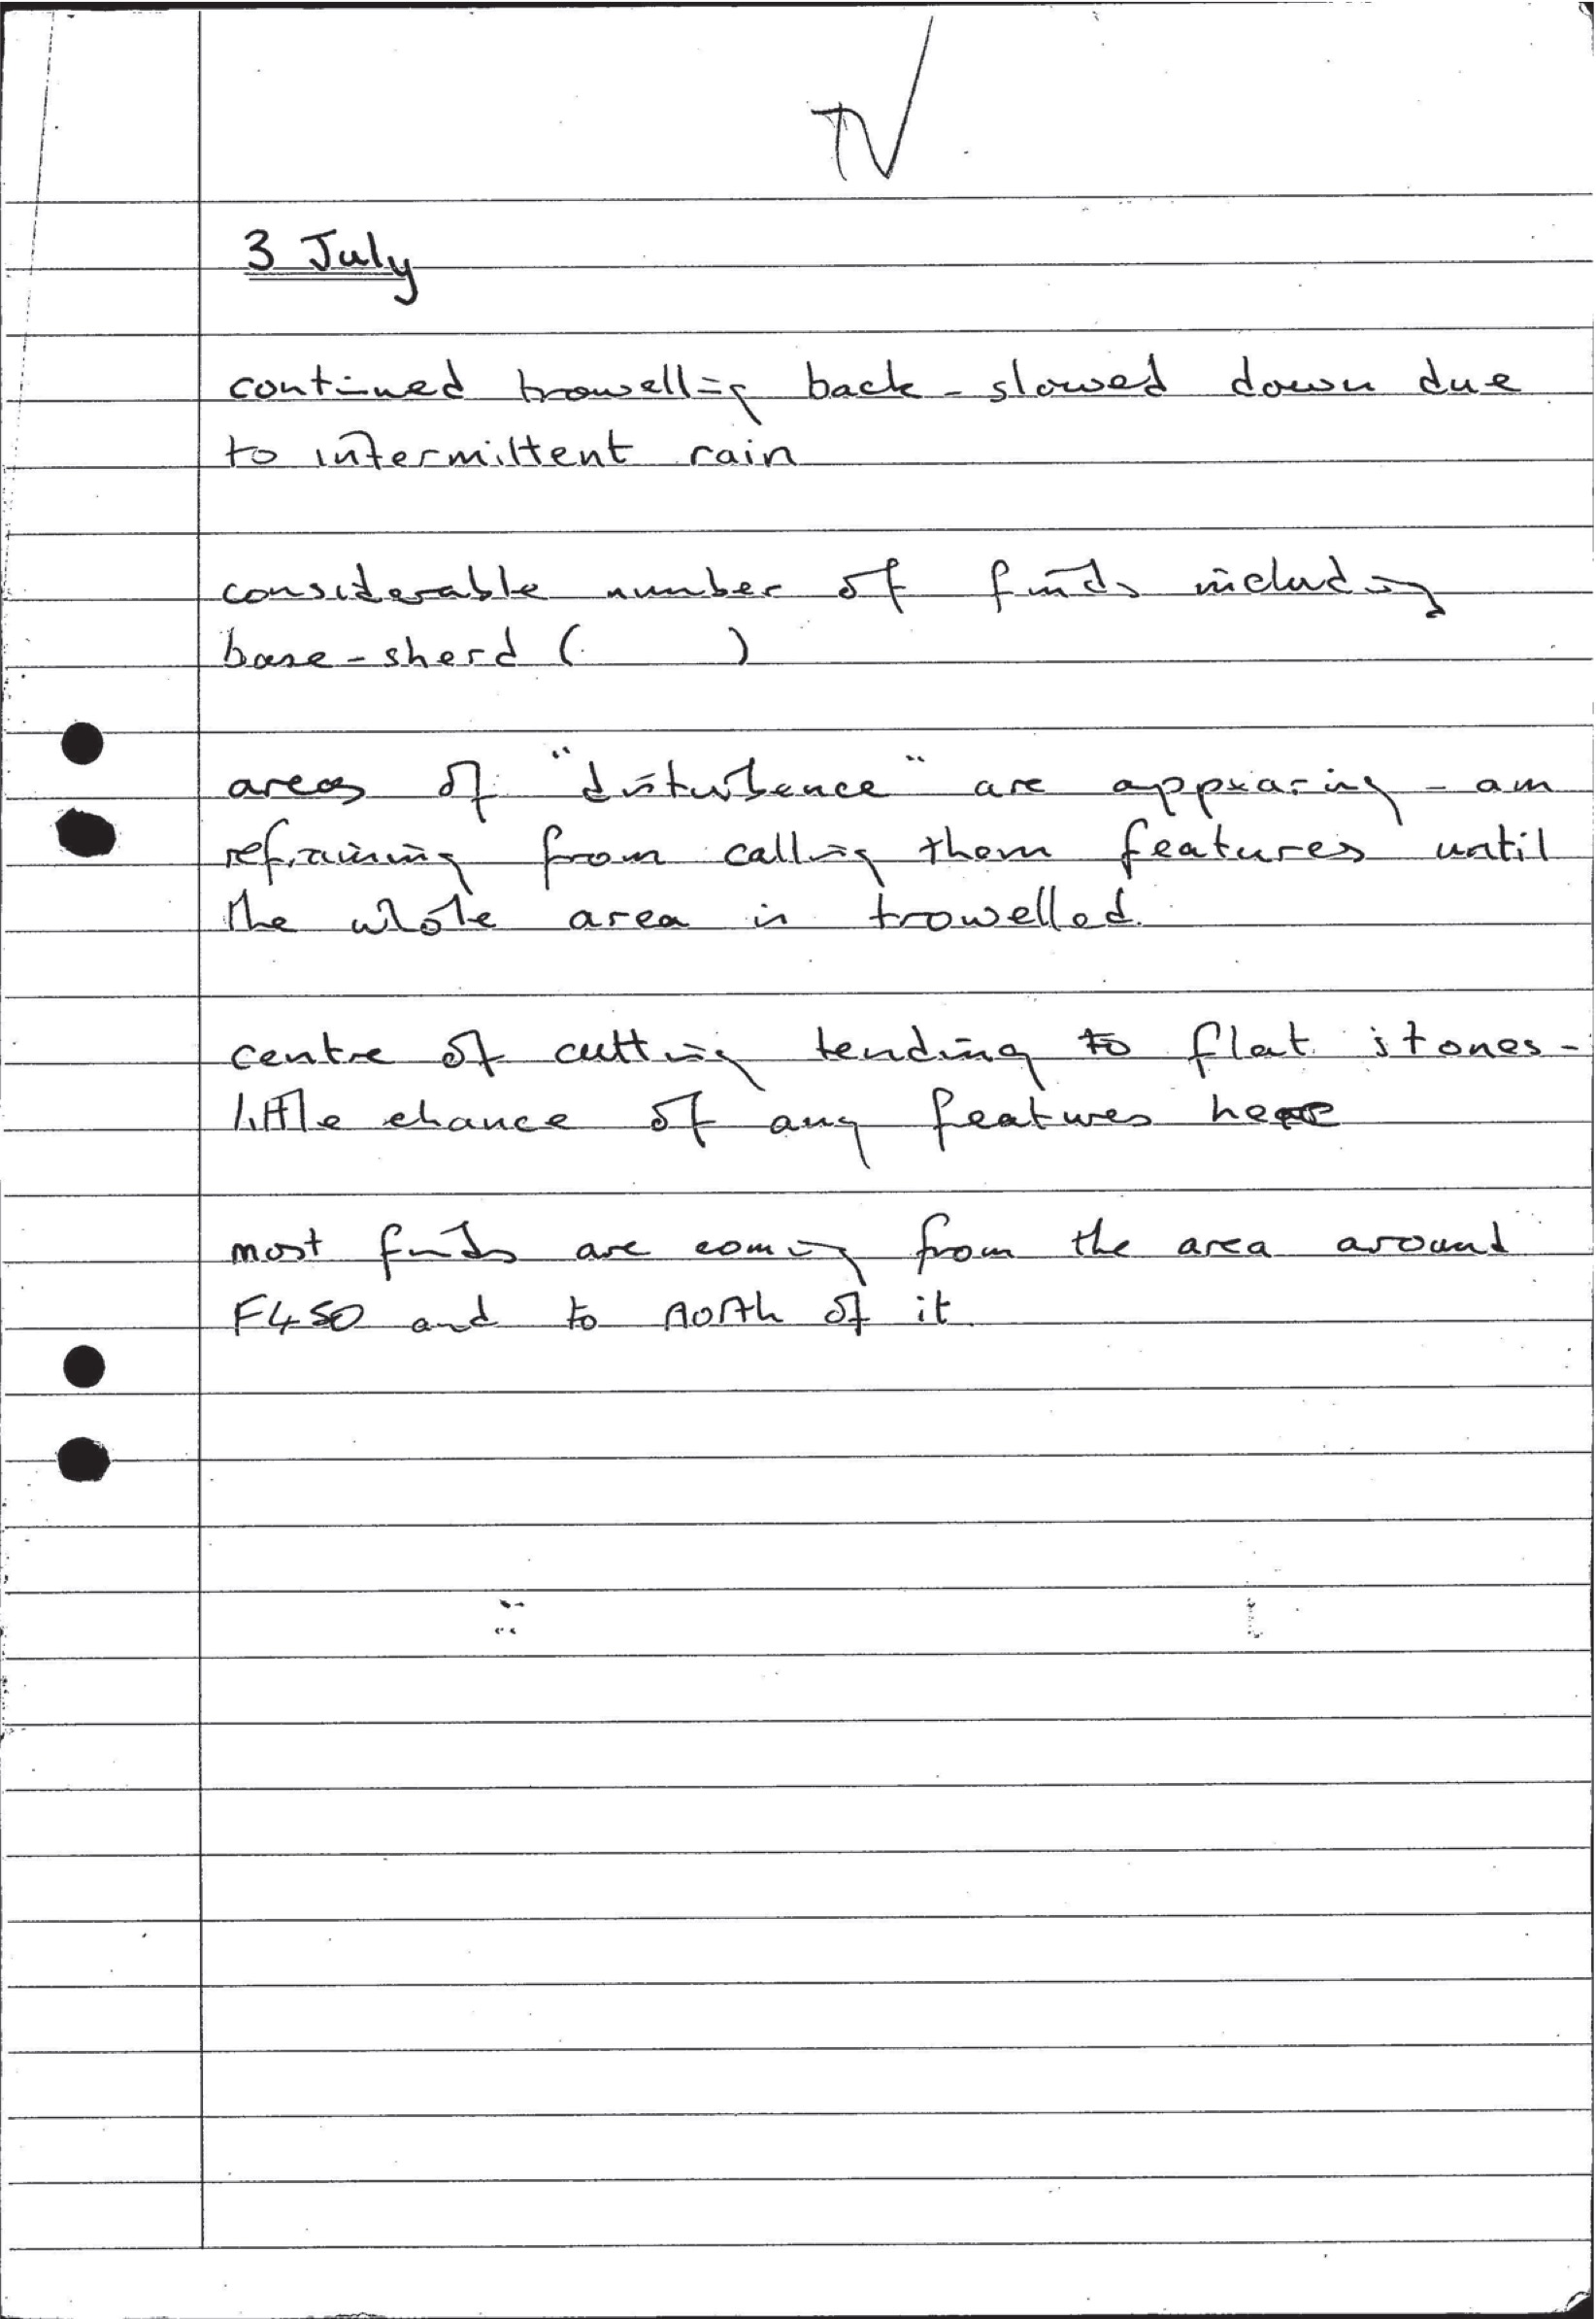 TV
3 July
continued trowelling back - slowed down due
to intermittent rain
considerable number of finds including
base-sherd (      )
areas of "disturbence" are appearing - am
refraining from calling them features until
the whole area is trowelled.
centre of cutting tending to flat stones -
little chance of any features here
most finds are coming from the area around
F450 and to north of it